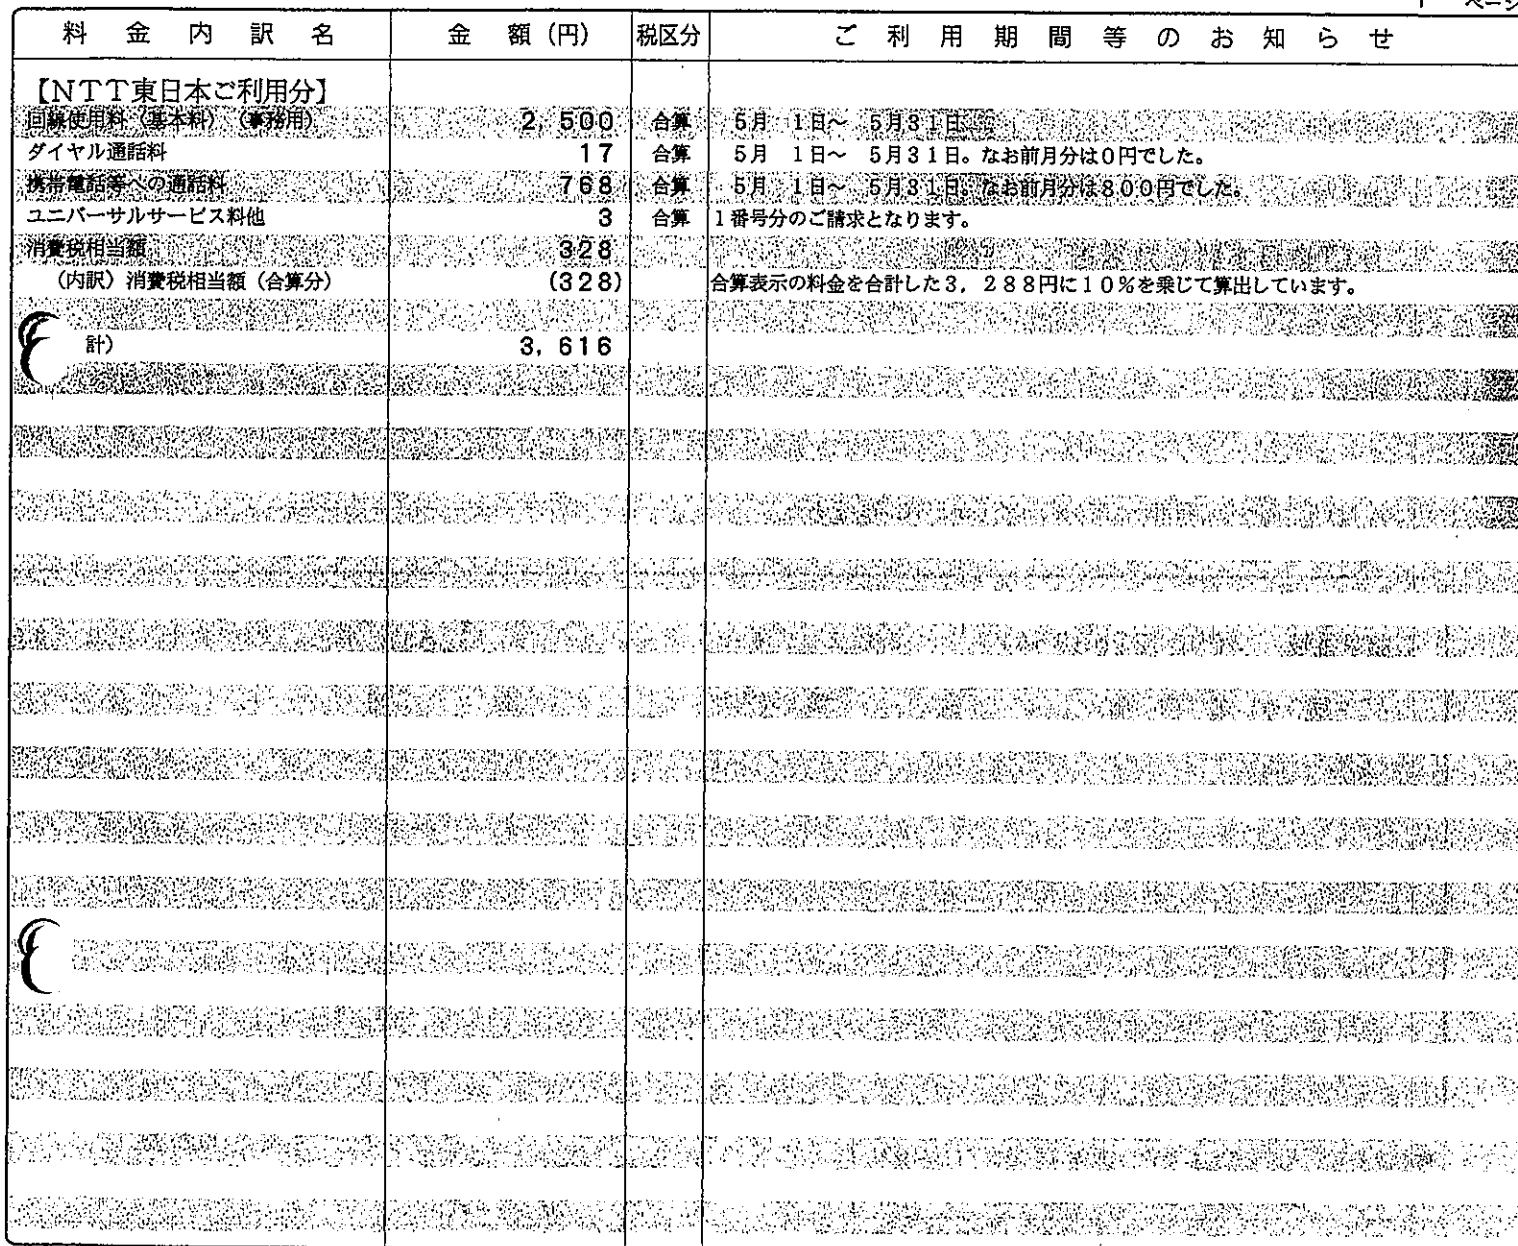 ページ
料金内訳名 金額(円) 税区分 ご利用期間等のお知らせ
【NTT東日本ご利用分】
回線使用料(基本料)(事務用) 2,500 合算 5月 1日~ 5月31日。
ダイヤル通話料 17 合算 5月 1日~ 5月31日。なお前月分は0円でした。
携帯電話等への通話料 768 合算 5月 1日~ 5月31日。なお前月分は800円でした。
ユニバーサルサービス料他 3 合算 1番号分のご請求となります。
消費税相当額 328
(内訳)消費税相当額(合算分) (328) 合算表示の料金を合計した3,288円に10%を乗じて算出しています。
計) 3,616